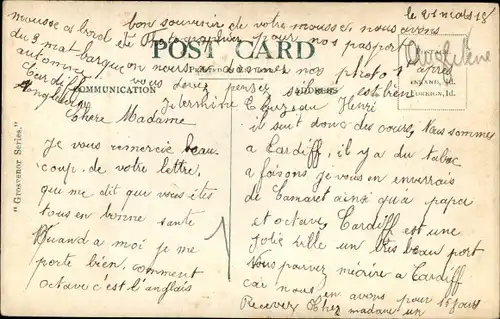 le 21 mars 18
bon souvenir de votre mousse, nous avons
mousse a bord du
été Photographier pour nos pasport
du 3 mat barque on nous a donner nos photo 1 après
automne
vous devez pensez si est bien
Cardiff
Angleterre
POST CARD
COMMUNICATION
ADDRESS
INLAND, ½d.
FOREIGN, 1d.
"Grosvenor Series."
Je termine Henri
Chère Madame
Je vous remercie beau-
coup de votre lettre,
qui me dit que vous êtes
tous en bonne santé
Quand a moi je me
porte bien, comment
octave c'est l'anglais
il suit donc des cours, Nous sommes
a Cardiff, il y a du tabac
a faisons je vous en enverrais
de Camaret ainsi qu'a papa
et octave, Cardiff est une
jolie ville un très beau port
Vous pouvez m'écrire a Cardiff
car nous en avons pour 15 jours
Recevez Chèr madame un